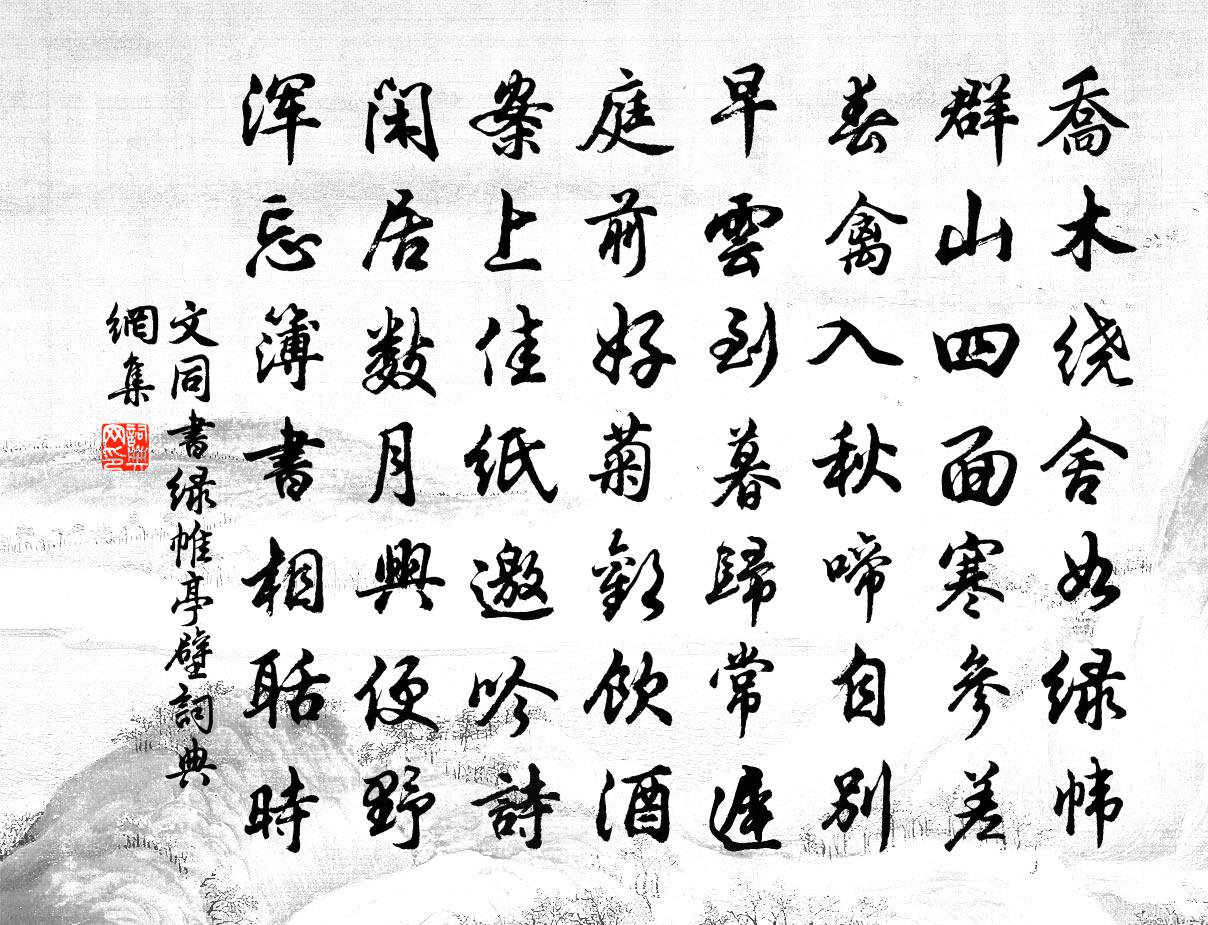 喬木绕舍如绿帏
群山四面寒參差
春禽入秋啼自别
早雲到暮歸常遲
庭前好菊勸飲酒
案上佳纸邀吟詩
闲居數月興便野
浑忘簿書相聒時
文同書绿帷亭壁詞典
網集